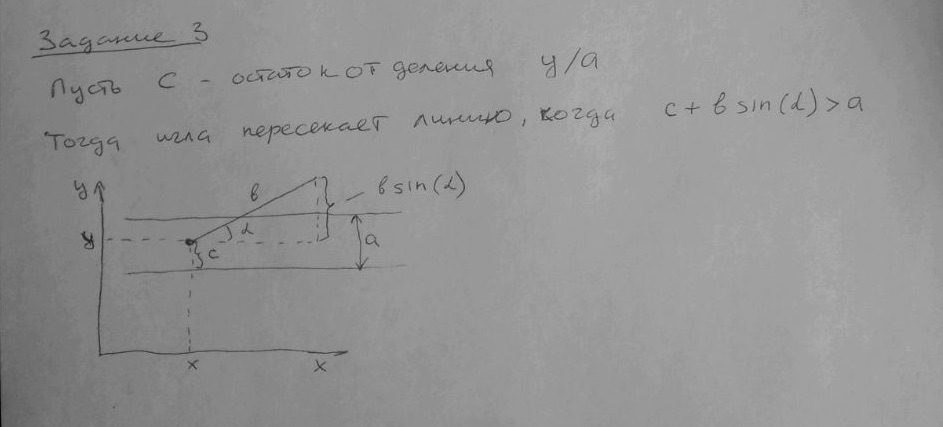 Задание 3
Пусть c - остаток от деления y/a
Тогда игла пересекает линию, когда c + b sin(α) > a
y
b
b sin(α)
y
α
a
c
x
x